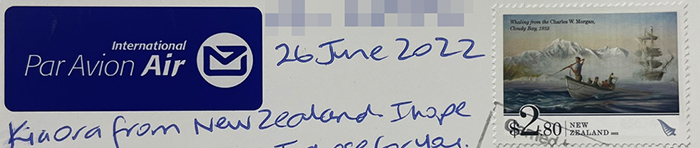 International
Par Avion Air
26 June 2022
Kia ora from New Zealand. I hope
Whaling from the Charles W. Morgan,
Cloudy Bay, 1852
$2.80 NEW
ZEALAND